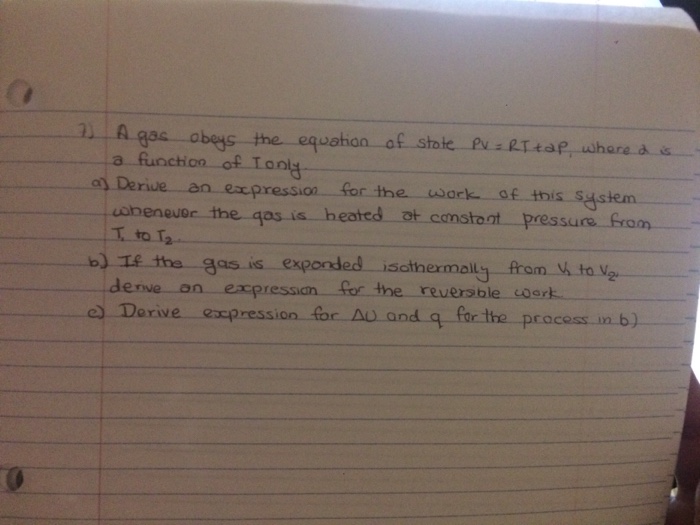 7) A gas obeys the equation of state PV = RT + aP, where a is
a function of T only.
a) Derive an expression for the work of this system
whenever the gas is heated at constant pressure from
T₁ to T₂.
b) If the gas is expanded isothermally from V₁ to V₂,
derive an expression for the reversible work.
c) Derive expression for ΔU and q for the process in b)